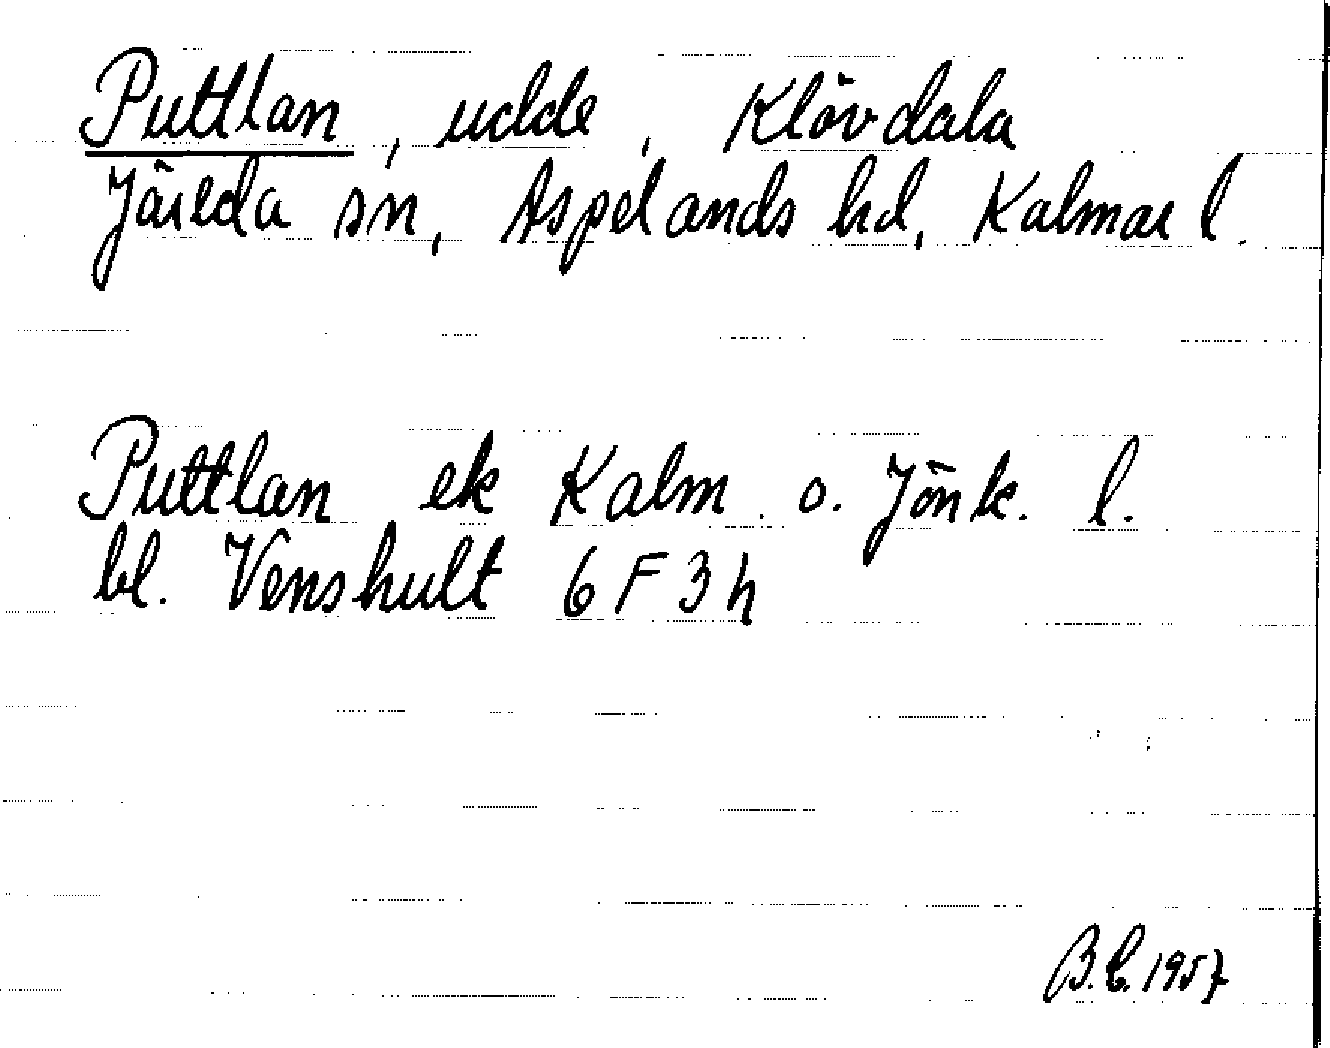 Puttlan, udde, Klövdala
Järeda sn, Aspelands hd, Kalmar l.
Puttlan ek Kalm. o. Jönk. l.
bl. Venshult 6 F 3 h
B.E. 1957